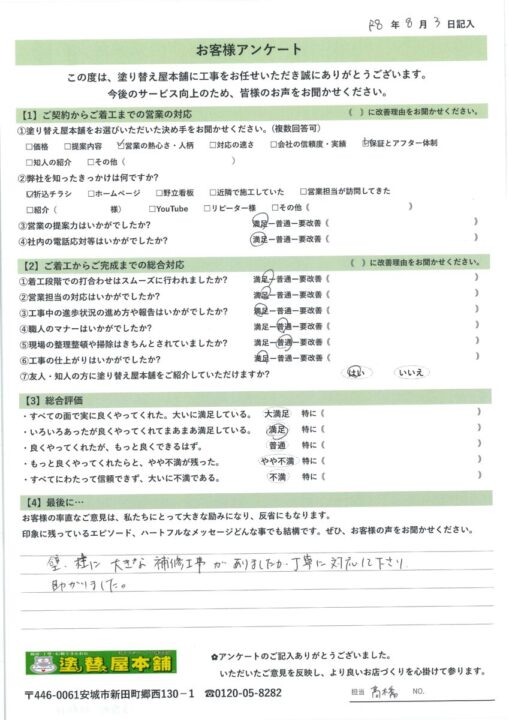 R8 年 8 月 3 日記入
お客様アンケート
この度は、塗り替え屋本舗に工事をお任せいただき誠にありがとうございます。
今後のサービス向上のため、皆様のお声をお聞かせください。
【1】ご契約からご着工までの営業の対応 ( )に改善理由をお聞かせください。
①塗り替え屋本舗をお選びいただいた決め手をお聞かせください。(複数回答可)
□価格 □提案内容 ☑営業の熱心さ・人柄 □対応の速さ □会社の信頼度・実績 ☑保証とアフター体制
□知人の紹介 □その他( )
②弊社を知ったきっかけは何ですか?
☑折込チラシ □ホームページ □野立看板 □近隣で施工していた □営業担当が訪問してきた
□紹介( 様) □YouTube □リピーター様 □その他( )
③営業の提案力はいかがでしたか? 満足ー普通ー要改善( )
④社内の電話応対等はいかがでしたか? 満足ー普通ー要改善( )
【2】ご着工からご完成までの総合対応 ( )に改善理由をお聞かせください。
①着工段階での打合わせはスムーズに行われましたか? 満足ー普通ー要改善( )
②営業担当の対応はいかがでしたか? 満足ー普通ー要改善( )
③工事中の進歩状況の進め方や報告はいかがでしたか? 満足ー普通ー要改善( )
④職人のマナーはいかがでしたか? 満足ー普通ー要改善( )
⑤現場の整理整頓や掃除はきちんとされていましたか? 満足ー普通ー要改善( )
⑥工事の仕上がりはいかがでしたか? 満足ー普通ー要改善( )
⑦友人・知人の方に塗り替え屋本舗をご紹介していただけますか? はい いいえ
【3】総合評価
・すべての面で実に良くやってくれた。大いに満足している。 大満足 特に( )
・いろいろあったが良くやってくれてまあまあ満足している。 満足 特に( )
・良くやってくれたが、もっと良くできるはず。 普通 特に( )
・もっと良くやってくれたらと、やや不満が残った。 やや不満 特に( )
・すべてにわたって信頼できず、大いに不満である。 不満 特に( )
【4】最後に…
お客様の率直なご意見は、私たちにとって大きな励みになり、反省にもなります。
印象に残っているエピソード、ハートフルなメッセージどんな事でも結構です。ぜひ、お客様の声をお聞かせください。
壁、柱に 大きな 補修工事 がありましたが、丁寧に対応して下さり
助かりました。
塗り替え屋本舗
✿アンケートのご記入ありがとうございました。
いただいたご意見を反映し、より良いお店づくりを心掛けて参ります。
〒446-0061安城市新田町郷西130－1 ☎0120-05-8282
担当 高橋 NO.